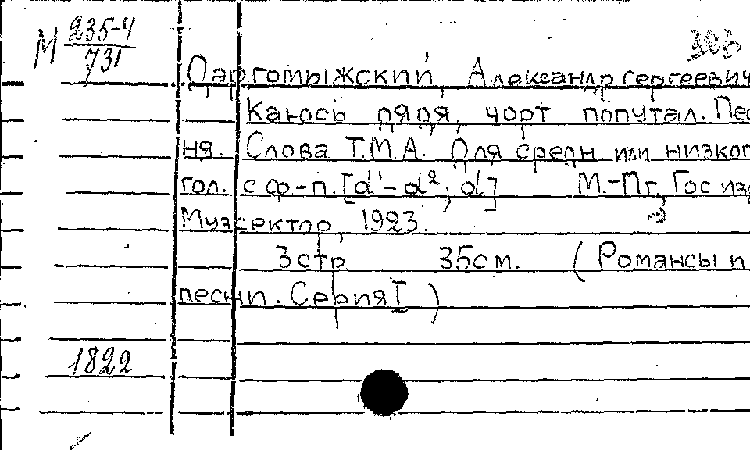 М 235-4
731
303
Даргомыжский, Александр Сергеевич
Каюсь дядя, чорт попутал. Пес
ня. Слова Т.М.А. Для средн или низког
гол. с ф-п. [d¹-d²; d] М.-Пг, Гос из
Музсектор, 1923.
3 стр 35 см. (Романсы и
песни. Серия I)
1822